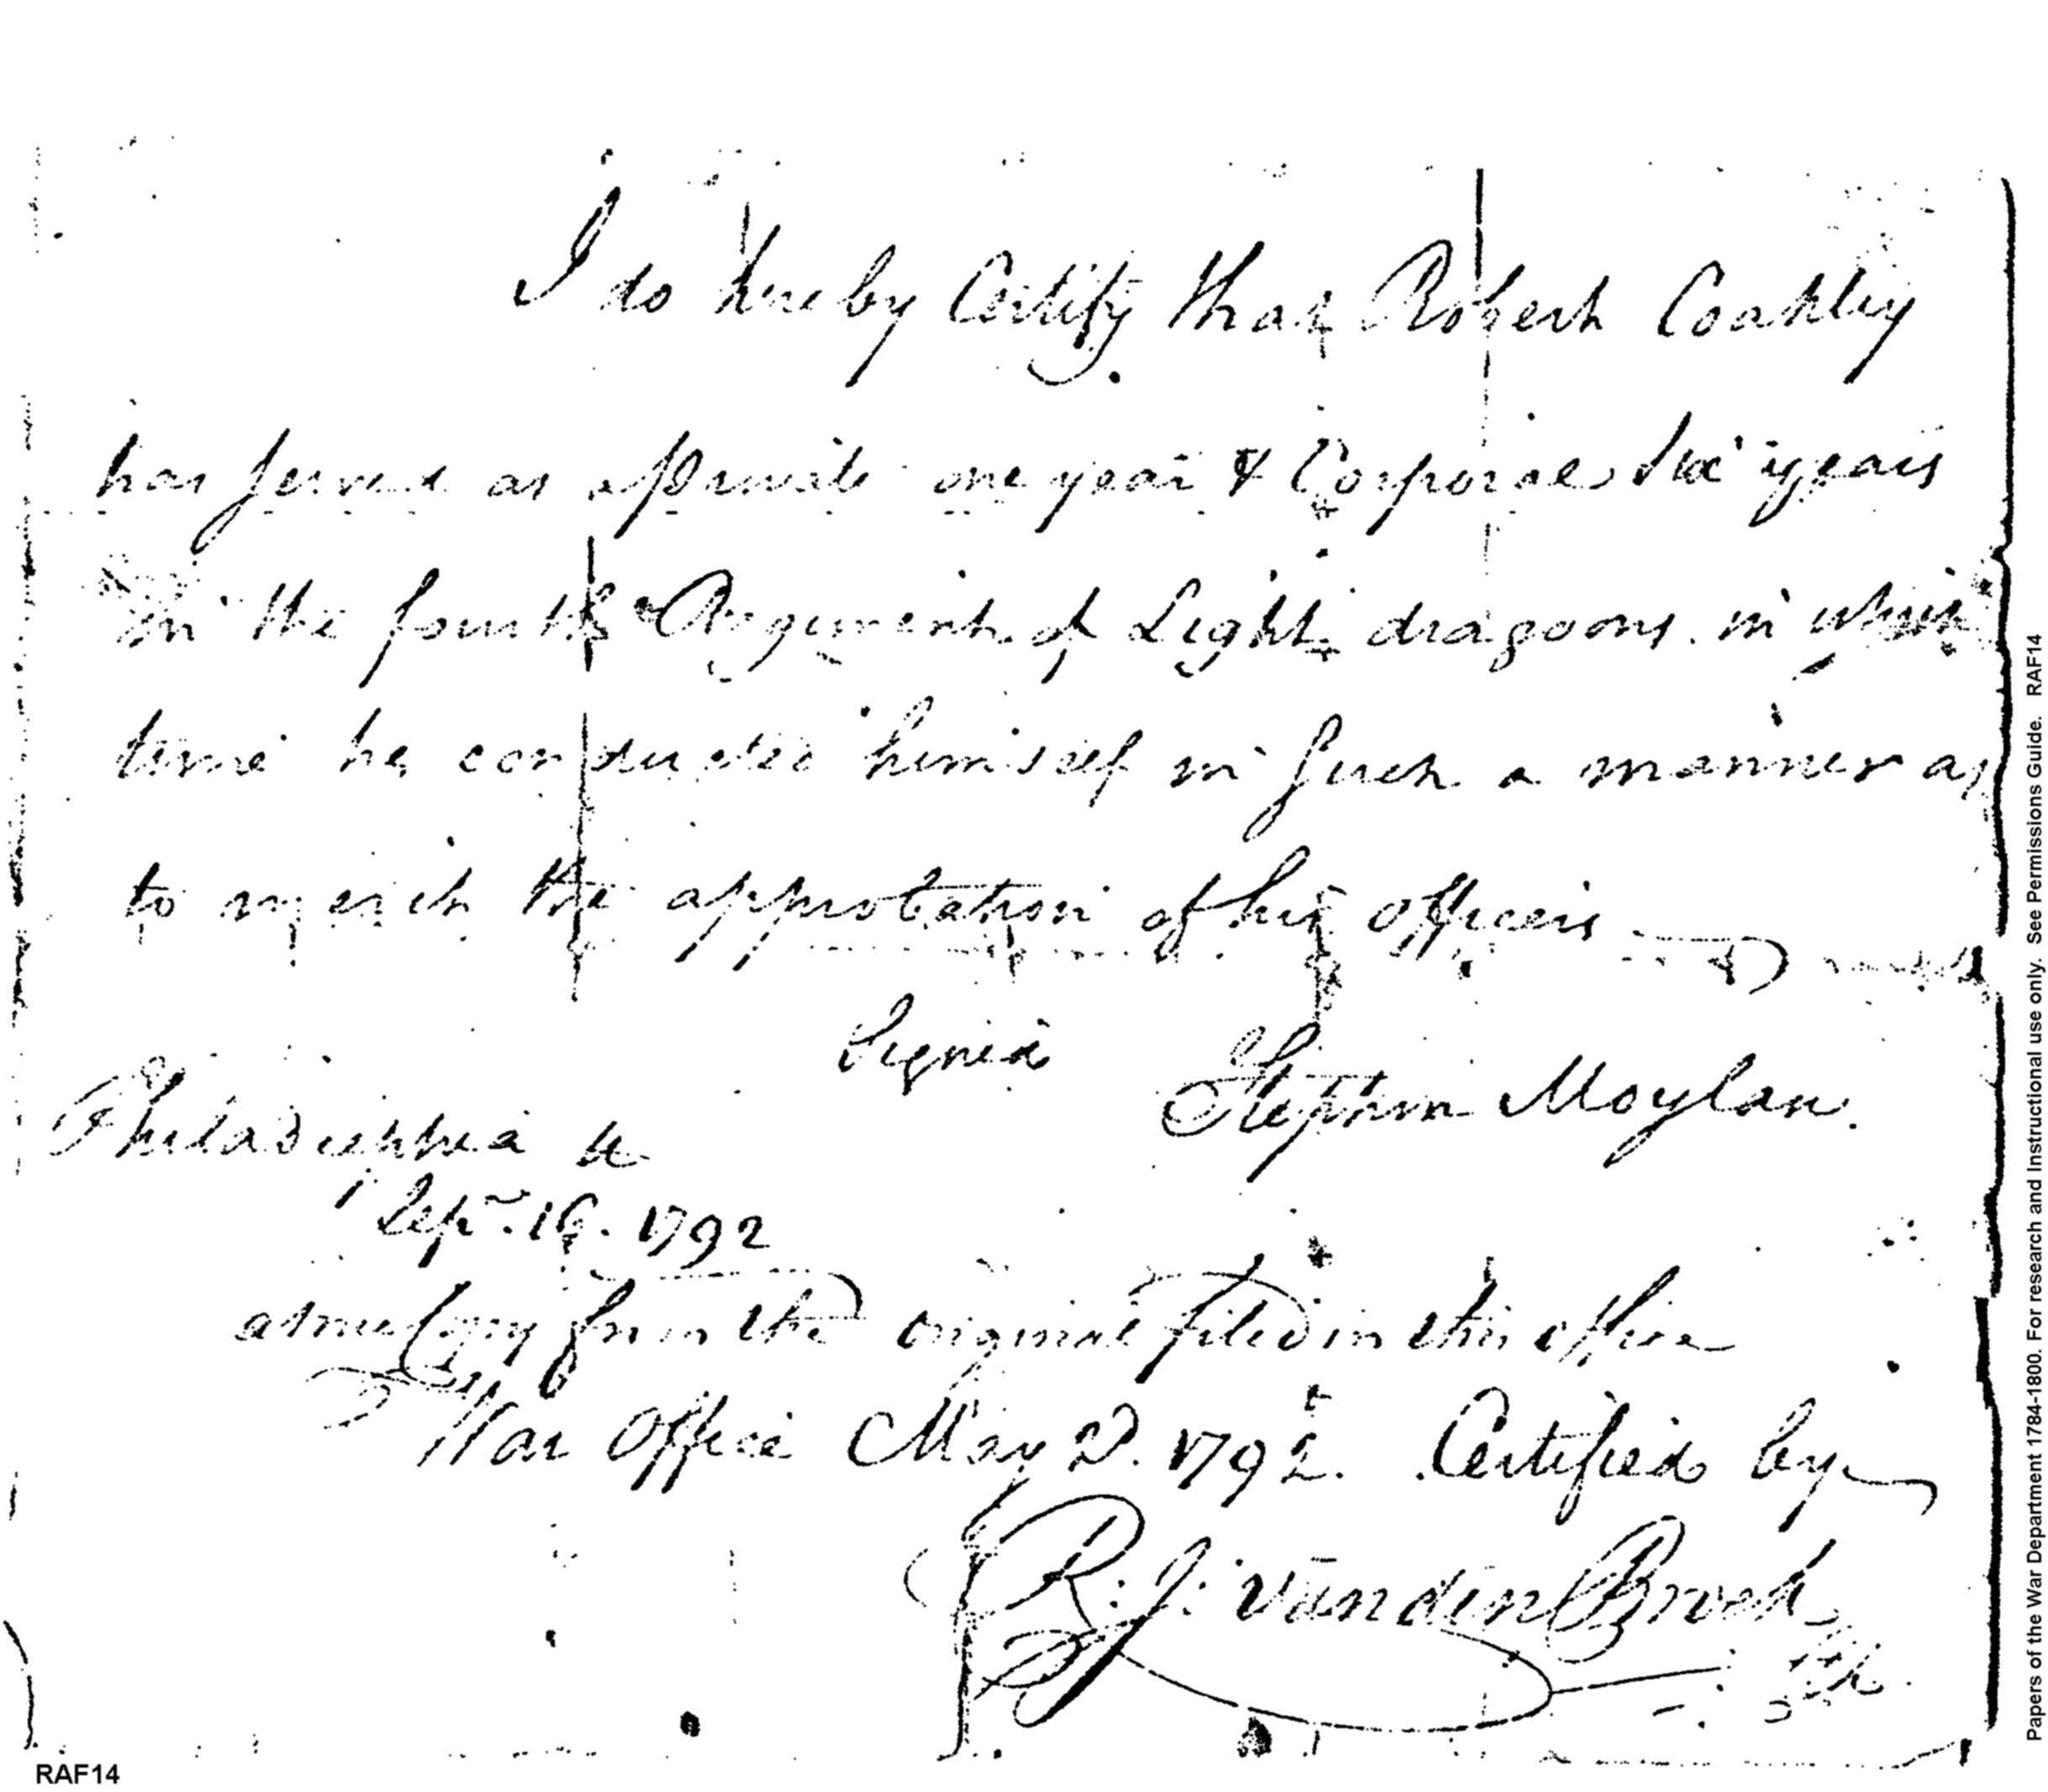 I do hereby Certify that Robert Coakley
has served as a Private one year & Corporal Six years
in the fourth Regiment of Light dragoons in which
time he conducted himself in such a manner as
to merit the approbation of his officers
Signed
Stephen Moylan.
Philadelphia
Sepr. 16. 1792
a true Copy from the original filed in this office
War Office May 2d. 1792. Certified by
R: J: vandenBroek
RAF14
Papers of the War Department 1784-1800. For research and Instructional use only. See Permissions Guide. RAF14